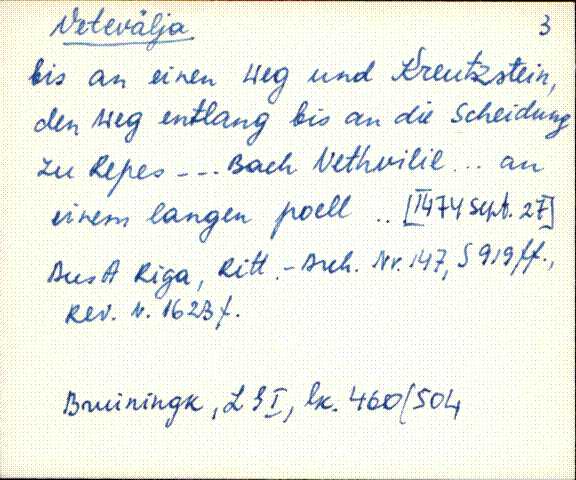 Vetevälja 3
bis an einen Weg und Kreutzstein,
den Weg entlang bis an die Scheidung
zu Repes --- Bach Vethvilie ... an
einem langen poell .. [1474 Sept. 27]
Aus A Riga, Ritt.-Arch. Nr. 147, S 919 ff.,
Rev. v. 1623 f.
Bruiningk, L G I, lk. 460/504